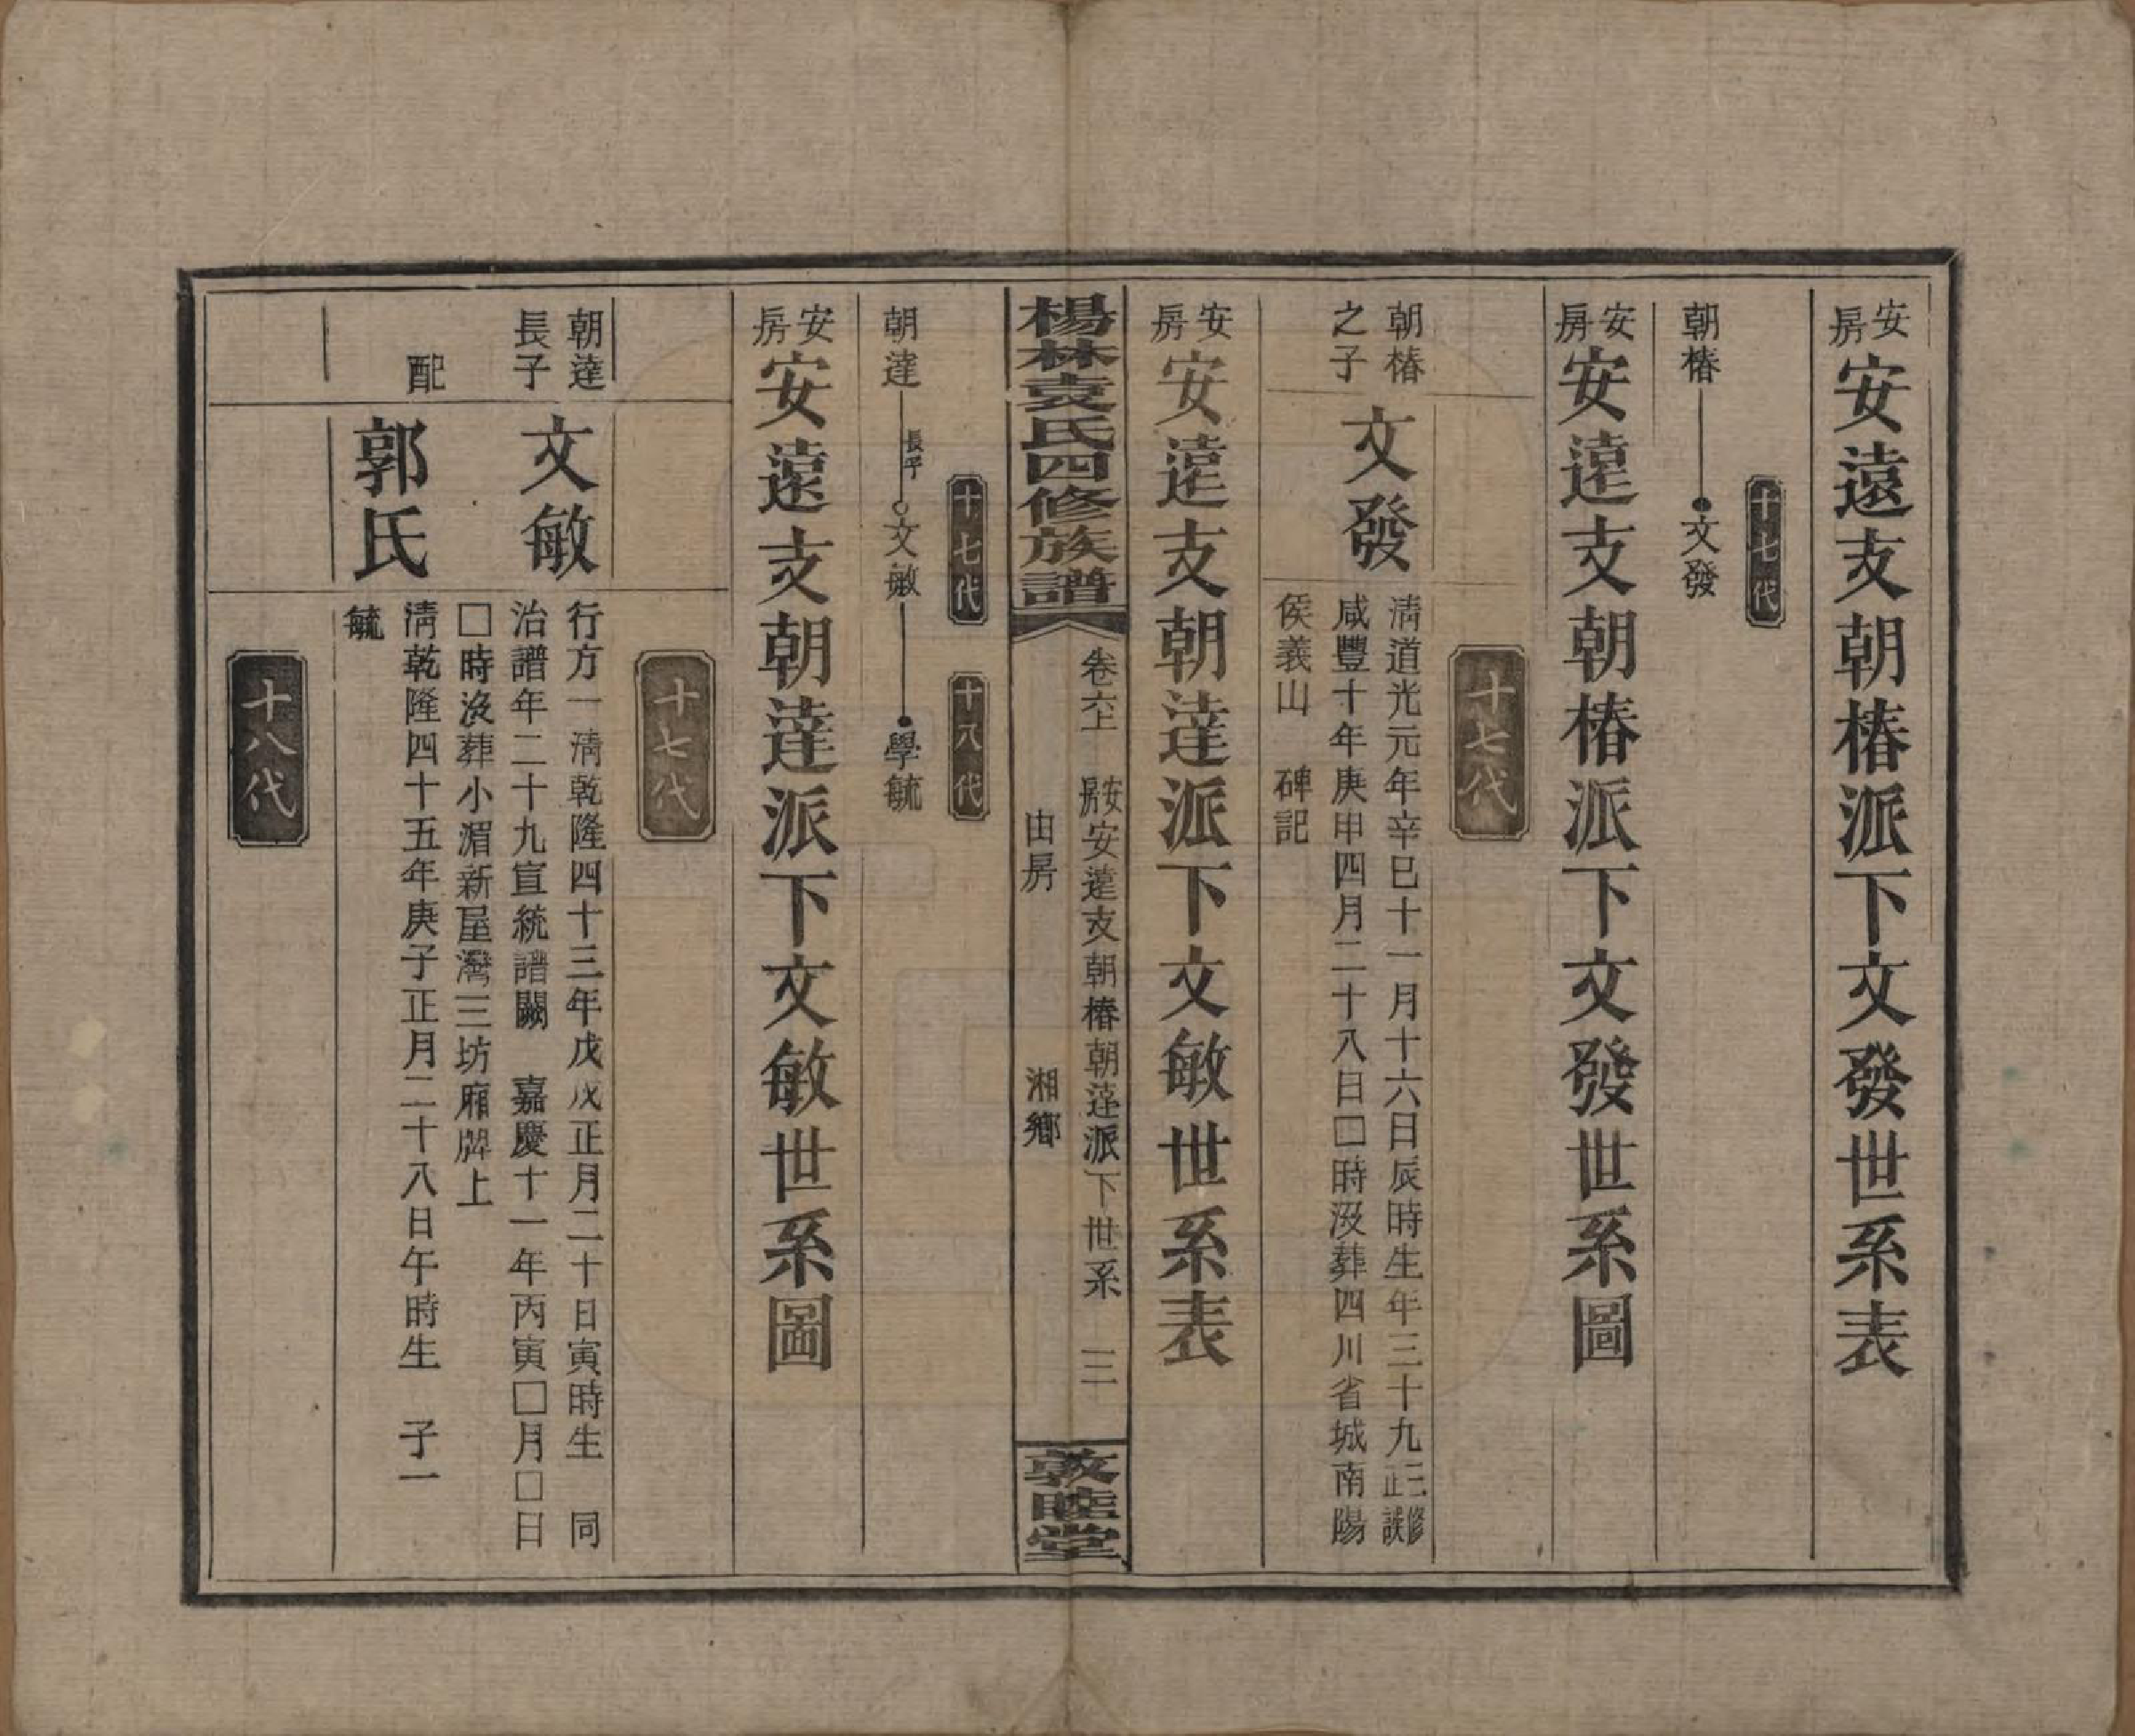 安房安遠支朝椿派下文發世系表
十七代
朝椿 文發
安房安遠支朝椿派下文發世系圖
十七代
朝椿之子 文發
清道光元年辛巳十一月十六日辰時生年三十九三修正誤
咸豐十年庚申四月二十八日□時没葬四川省城南陽
侯義山 碑記
安房安遠支朝達派下文敏世系表
楊林袁氏四修族譜 卷六上 安房安遠支朝椿朝達派下世系 三 由房 湘鄉 敦睦堂
十七代 十八代
朝達 長子 文敏 學毓
安房安遠支朝達派下文敏世系圖
十七代
朝達長子 文敏
行方一清乾隆四十三年戊戌正月二十日寅時生 同
治譜年二十九宣統譜闕 嘉慶十一年丙寅□月□日
□時没葬小湄新屋灣三坊廂牌上
配 郭氏
清乾隆四十五年庚子正月二十八日午時生 子一
毓
十八代